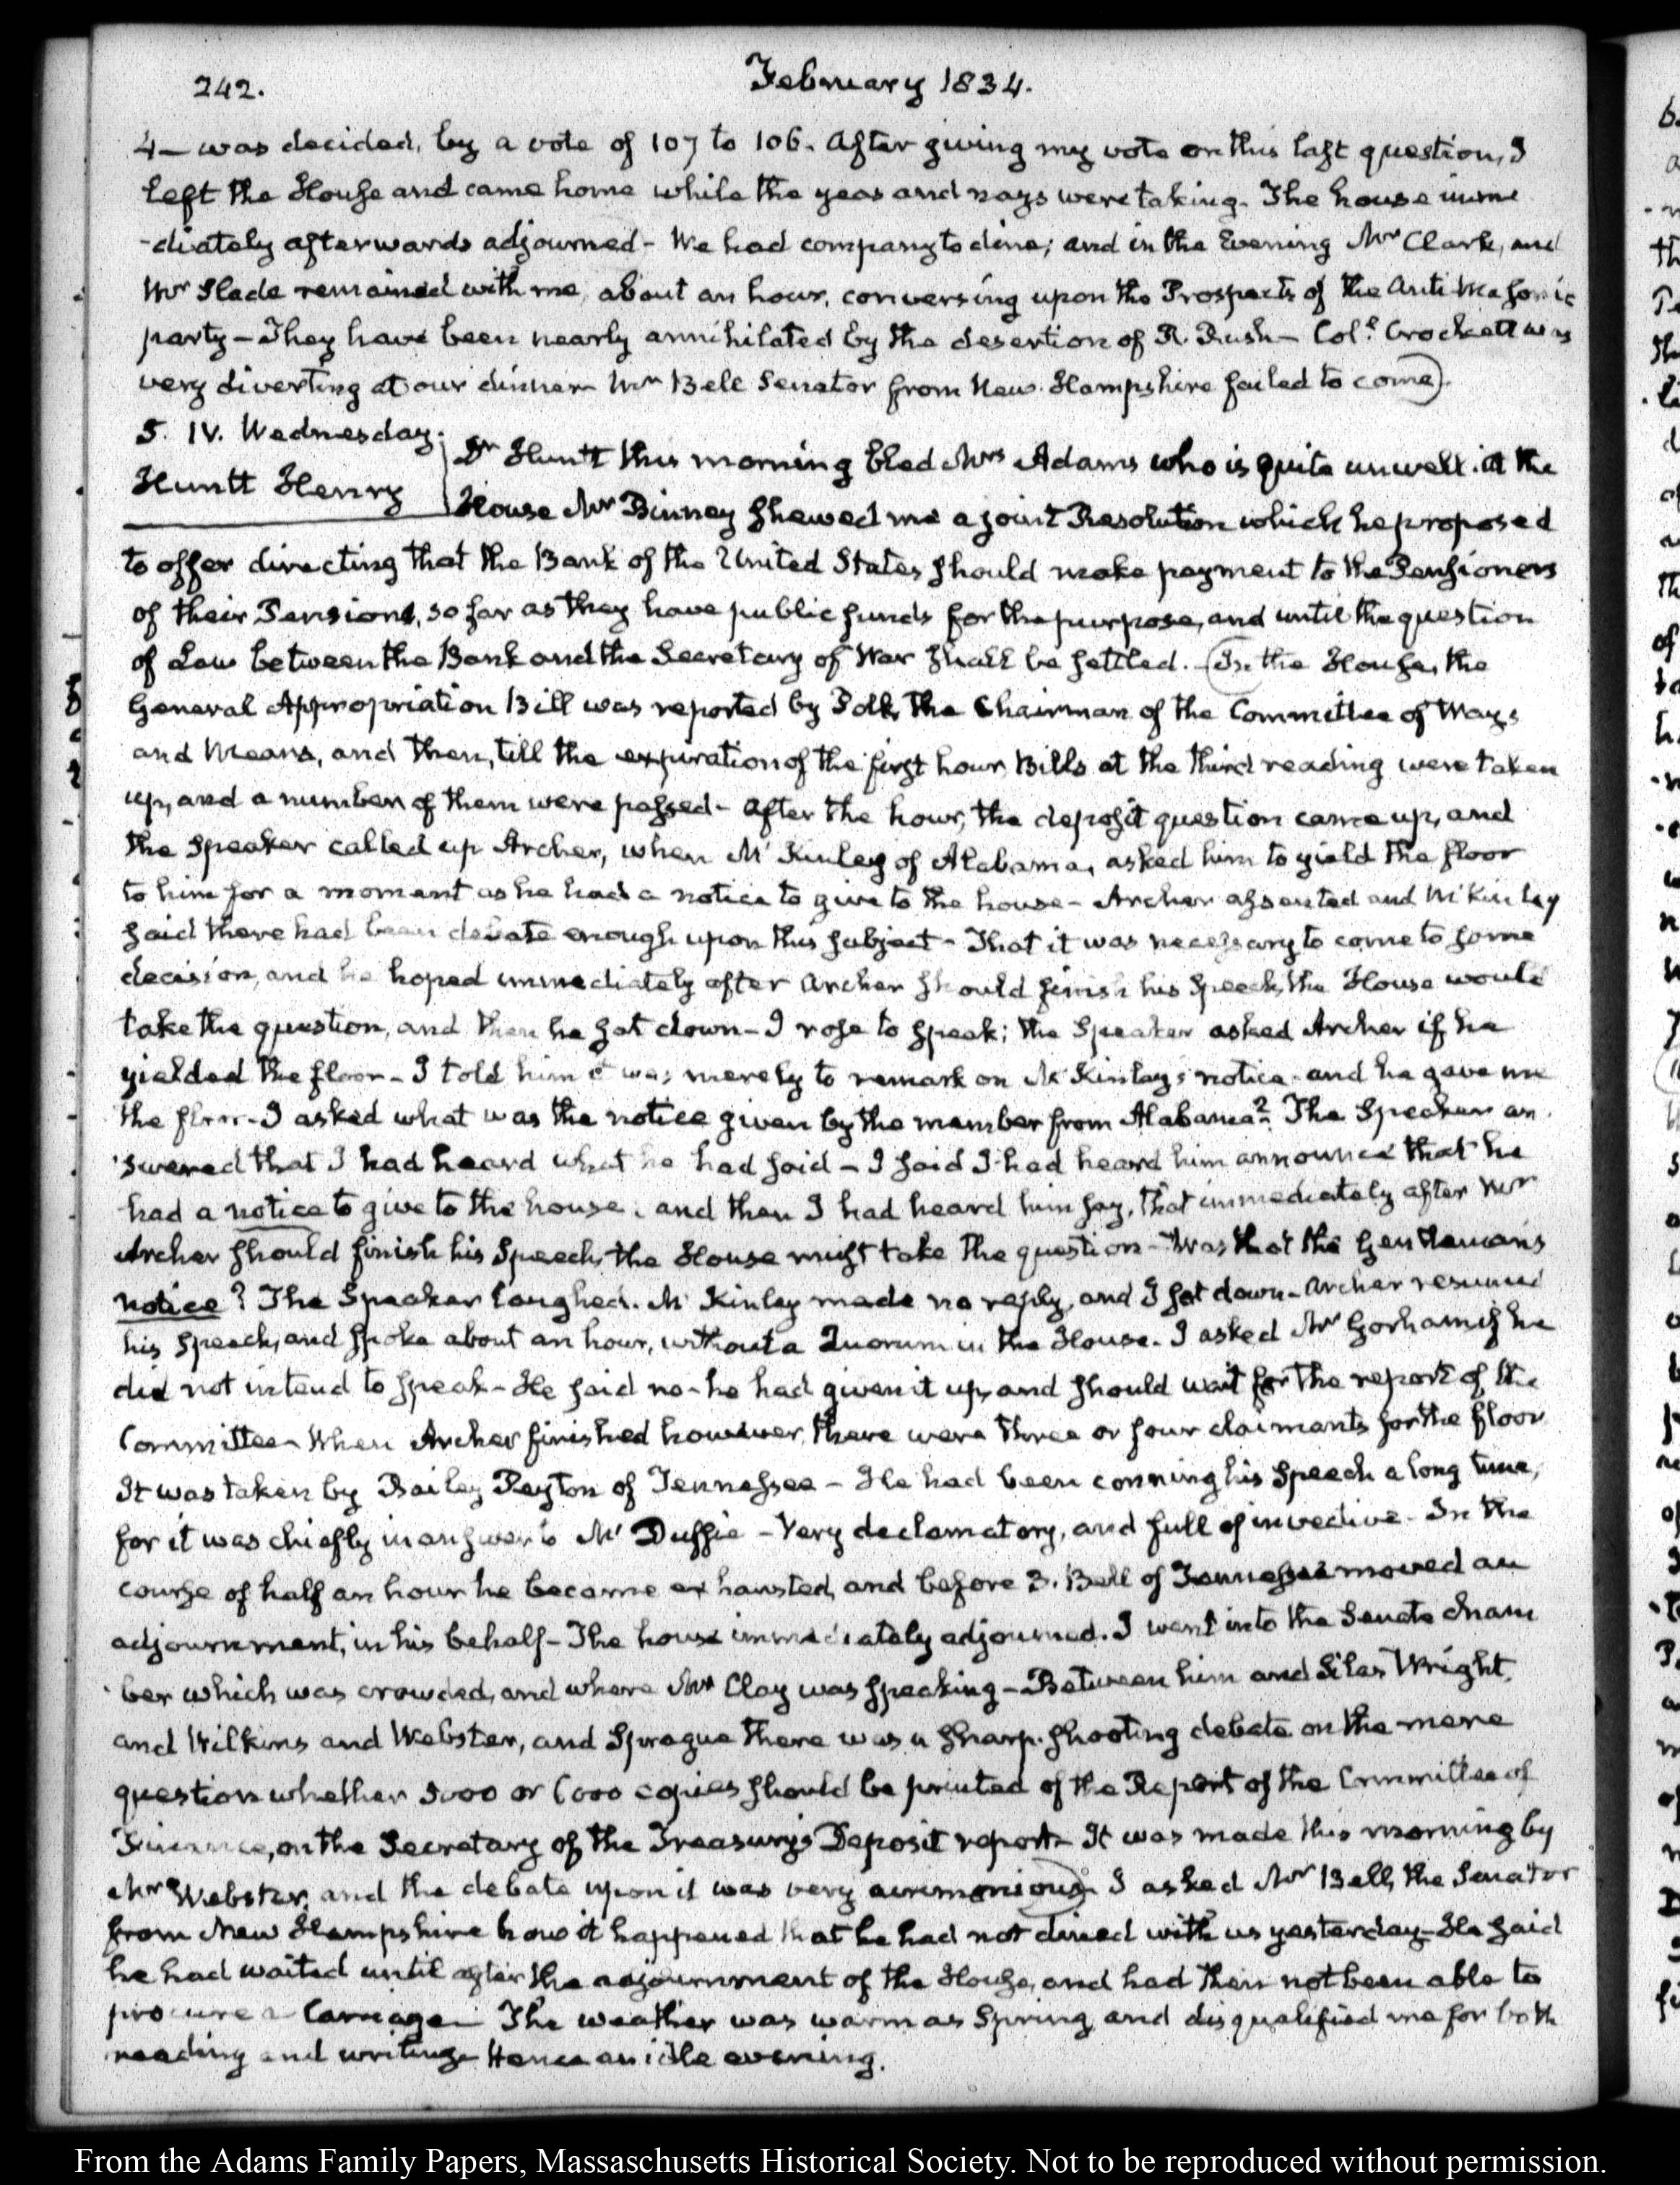 242.
February 1834.
4— was decided, by a vote of 107 to 106. After giving my vote on this last question, I
left the House and came home while the yeas and nays were taking. The house imme
-diately afterwards adjourned- We had company to dine; and in the Evening Mr Clark, and
Mr Slade remained with me, about an hour, conversing upon the Prospects of the Anti Masonic
party— They have been nearly annihilated by the desertion of R. Rush— Col.l Crockett was
very diverting at our dinner Mr Bell Senator from New-Hampshire failed to come).
5. IV. Wednesday.
Huntt Henry
Dr Huntt this morning bled Mrs Adams who is quite unwell. At the
House Mr Binney shewed me a joint Resolution which he proposed
to offer directing that the Bank of the United States should make payment to the Pensioners
of their Pensions, so far as they have public funds for the purpose, and until the question
of Law between the Bank and the Secretary of War shall be settled. (In the House, the
General Appropriation Bill was reported by Polk, the Chairman of the Committee of Ways
and Means, and then, till the expiration of the first hour Bills at the third reading were taken
up, and a number of them were passed- After the hour, the deposit question came up, and
the Speaker called up Archer, when McKinley of Alabama, asked him to yield the floor
to him for a moment as he had a notice to give to the house- Archer assented and McKinley
said there had been debate enough upon this subject- That it was necessary to come to some
decision, and he hoped immediately after Archer should finish his Speech, the House would
take the question, and then he sat down- I rose to speak; the Speaker asked Archer if he
yielded the floor- I told him it was merely to remark on McKinley's notice- and he gave me
the floor- I asked what was the notice given by the member from Alabama? The Speaker an
-swered that I had heard what he had said- I said I had heard him announce that he
had a notice to give to the house, and then I had heard him say, that immediately after Mr
Archer should finish his Speech, the House might take the question- Was that the Gentleman's
notice? The Speaker laughed. McKinley made no reply, and I sat down- Archer resumed
his Speech, and spoke about an hour, without a Quorum in the House. I asked Mr Gorham if he
did not intend to speak- He said no- he had given it up, and should wait for the report of the
Committee- When Archer finished however, there were three or four claimants for the floor
It was taken by Bailey Peyton of Tennessee- He had been conning his Speech a long time,
for it was chiefly in answer to McDuffie- Very declamatory, and full of invective- In the
course of half an hour he became exhausted, and before 3. Bell of Tennessee moved an
adjournment, in his behalf- The house immediately adjourned. I went into the Senate Cham
-ber which was crowded, and where Mr Clay was speaking- Between him and Silas Wright,
and Wilkins and Webster, and Sprague there was a sharp-shooting debate on the mere
question whether 5000 or 6000 copies should be printed of the Report of the Committee of
Finance, on the Secretary of the Treasury's Deposit report- It was made this morning by
Mr Webster, and the debate upon it was very acrimonious) I asked Mr Bell, the Senator
from New Hampshire how it happened that he had not dined with us yesterday- He said
he had waited until after the adjournment of the House, and had then not been able to
procure a Carriage- The weather was warm as Spring, and disqualified me for both
reading and writing- Hence an idle evening.
From the Adams Family Papers, Massachusetts Historical Society. Not to be reproduced without permission.